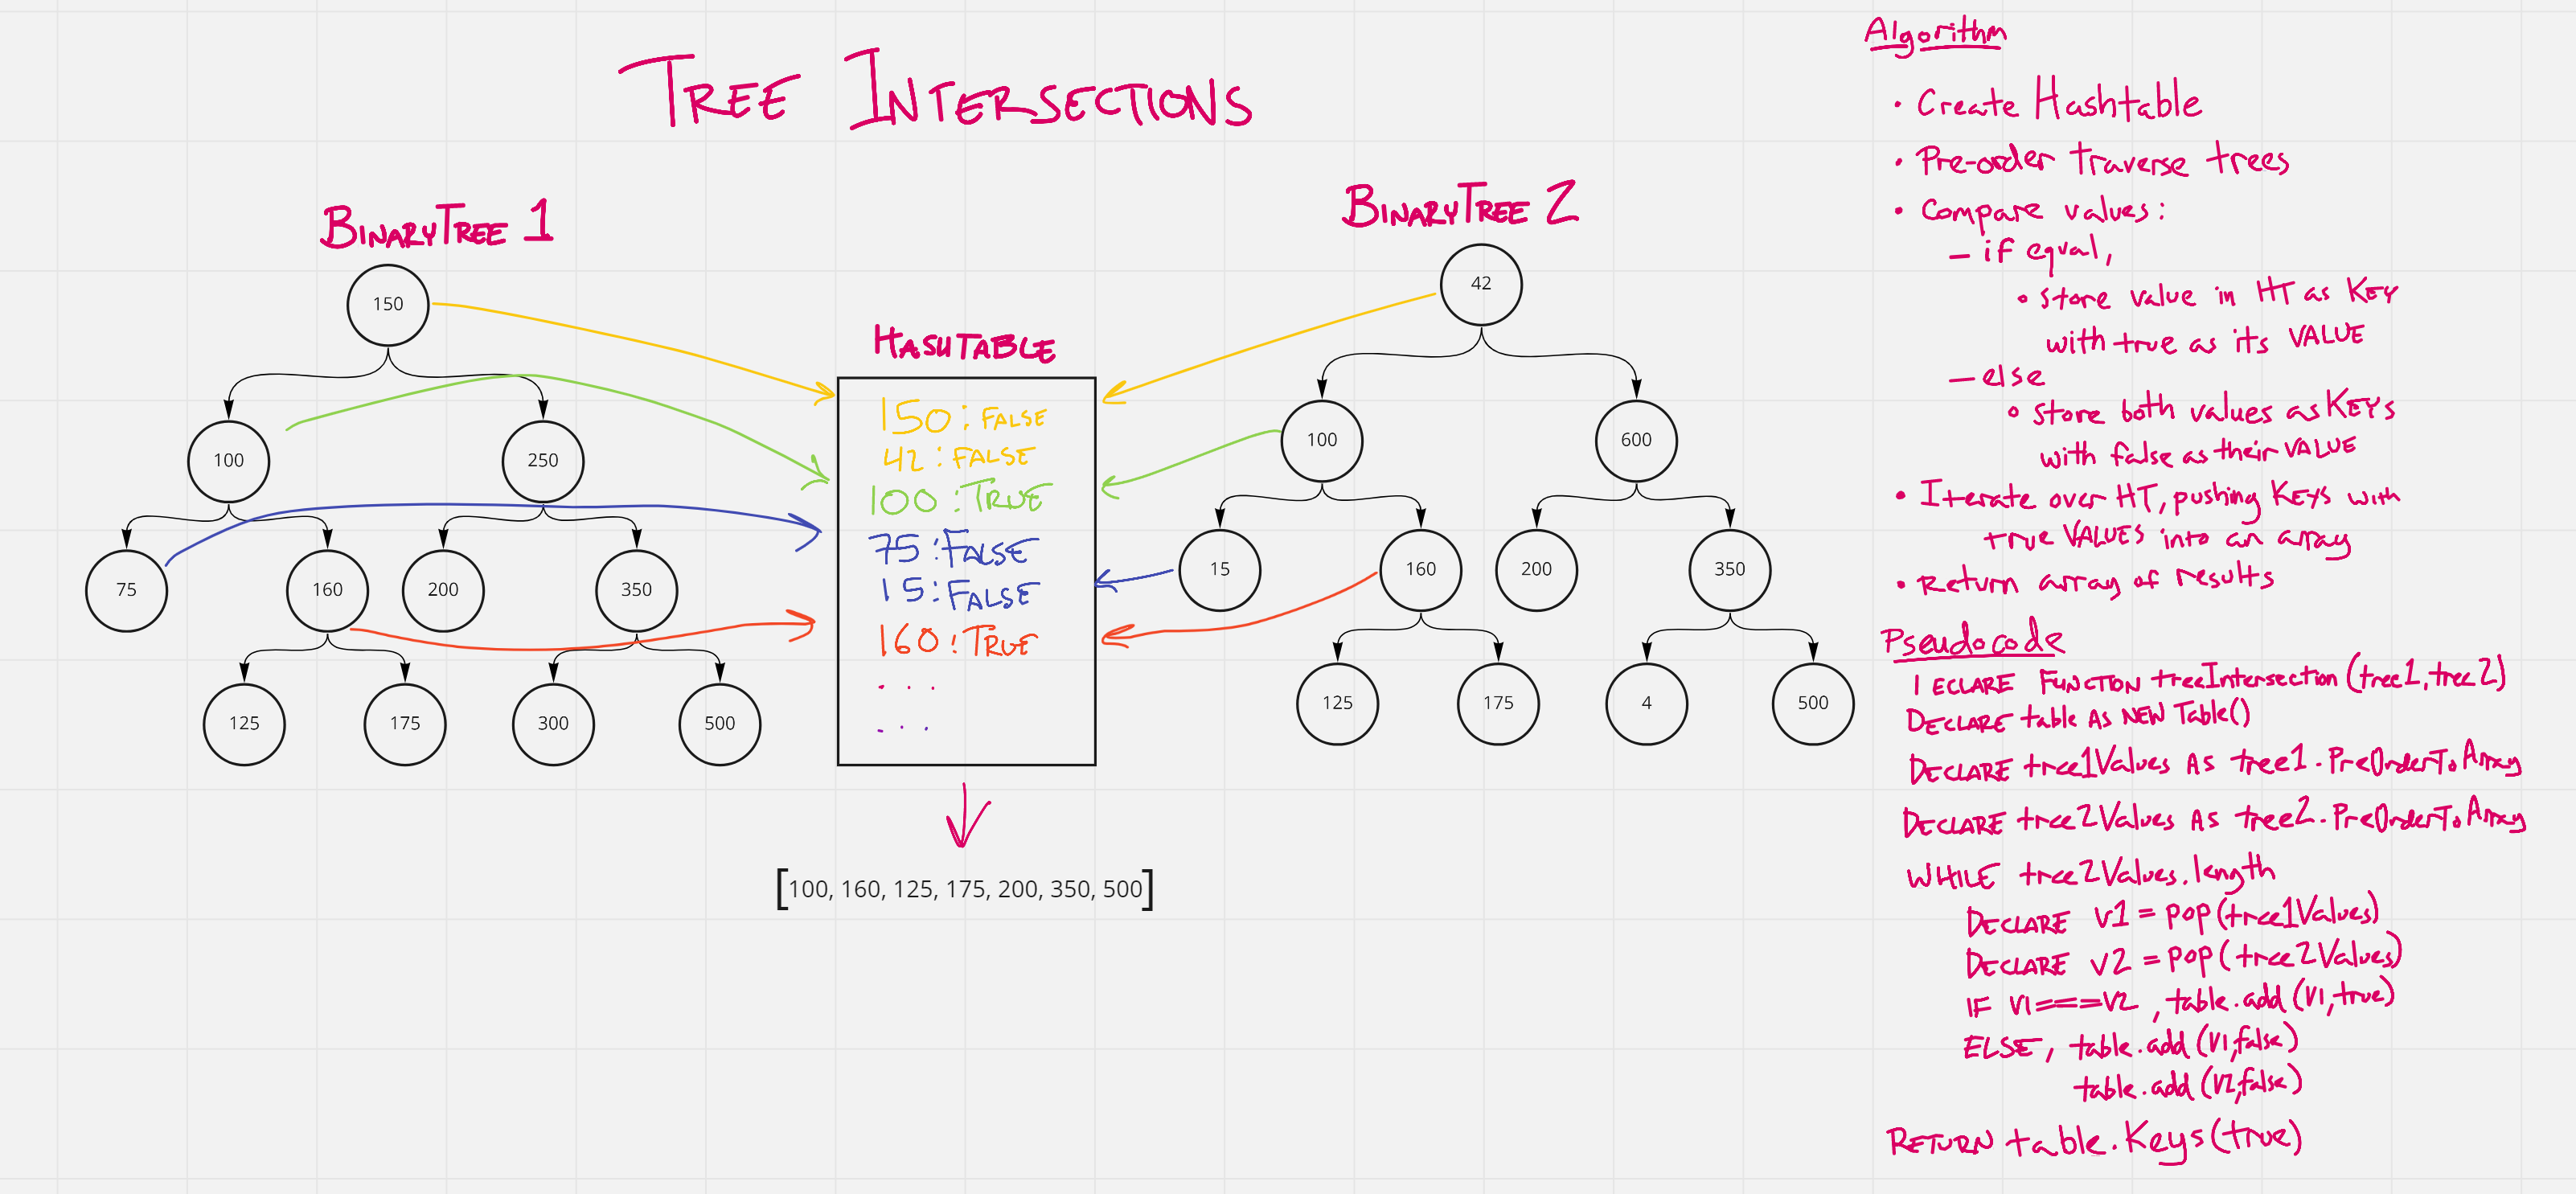 TREE INTERSECTIONS
BINARYTREE 1
150
100
250
75
160
200
350
125
175
300
500
HASHTABLE
150 : FALSE
42 : FALSE
100 : TRUE
75 : FALSE
15 : FALSE
160 : TRUE
. . .
. . .
[100, 160, 125, 175, 200, 350, 500]
BINARYTREE 2
42
100
600
15
160
200
350
125
175
4
500
Algorithm
• Create Hashtable
• Pre-order traverse trees
• Compare values:
– if equal,
• Store value in HT as KEY
with true as its VALUE
– else
• Store both values as KEYS
with false as their VALUE
• Iterate over HT, pushing KEYS with
true VALUES into an array
• Return array of results
Pseudocode
DECLARE FUNCTION treeIntersection(tree1, tree2)
DECLARE table AS NEW Table()
DECLARE tree1Values AS tree1.PreOrderToArray
DECLARE tree2Values AS tree2.PreOrderToArray
WHILE tree2Values.length
DECLARE v1 = pop(tree1Values)
DECLARE v2 = pop(tree2Values)
IF v1===v2, table.add(v1,true)
ELSE, table.add(v1,false)
table.add(v2,false)
RETURN table.Keys(true)